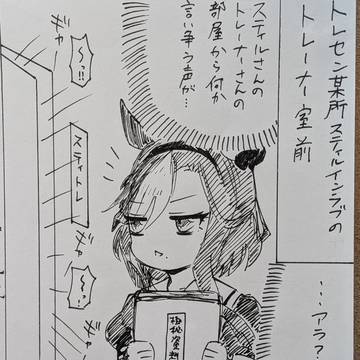 トレセン某所スティルインラブの
トレーナー室前
スティルさんの
トレーナーさんの
部屋から何か
言い争う声が…
…アラス
ギャ
〜!!
スティトレ
ギャ
〜!!
ギャ